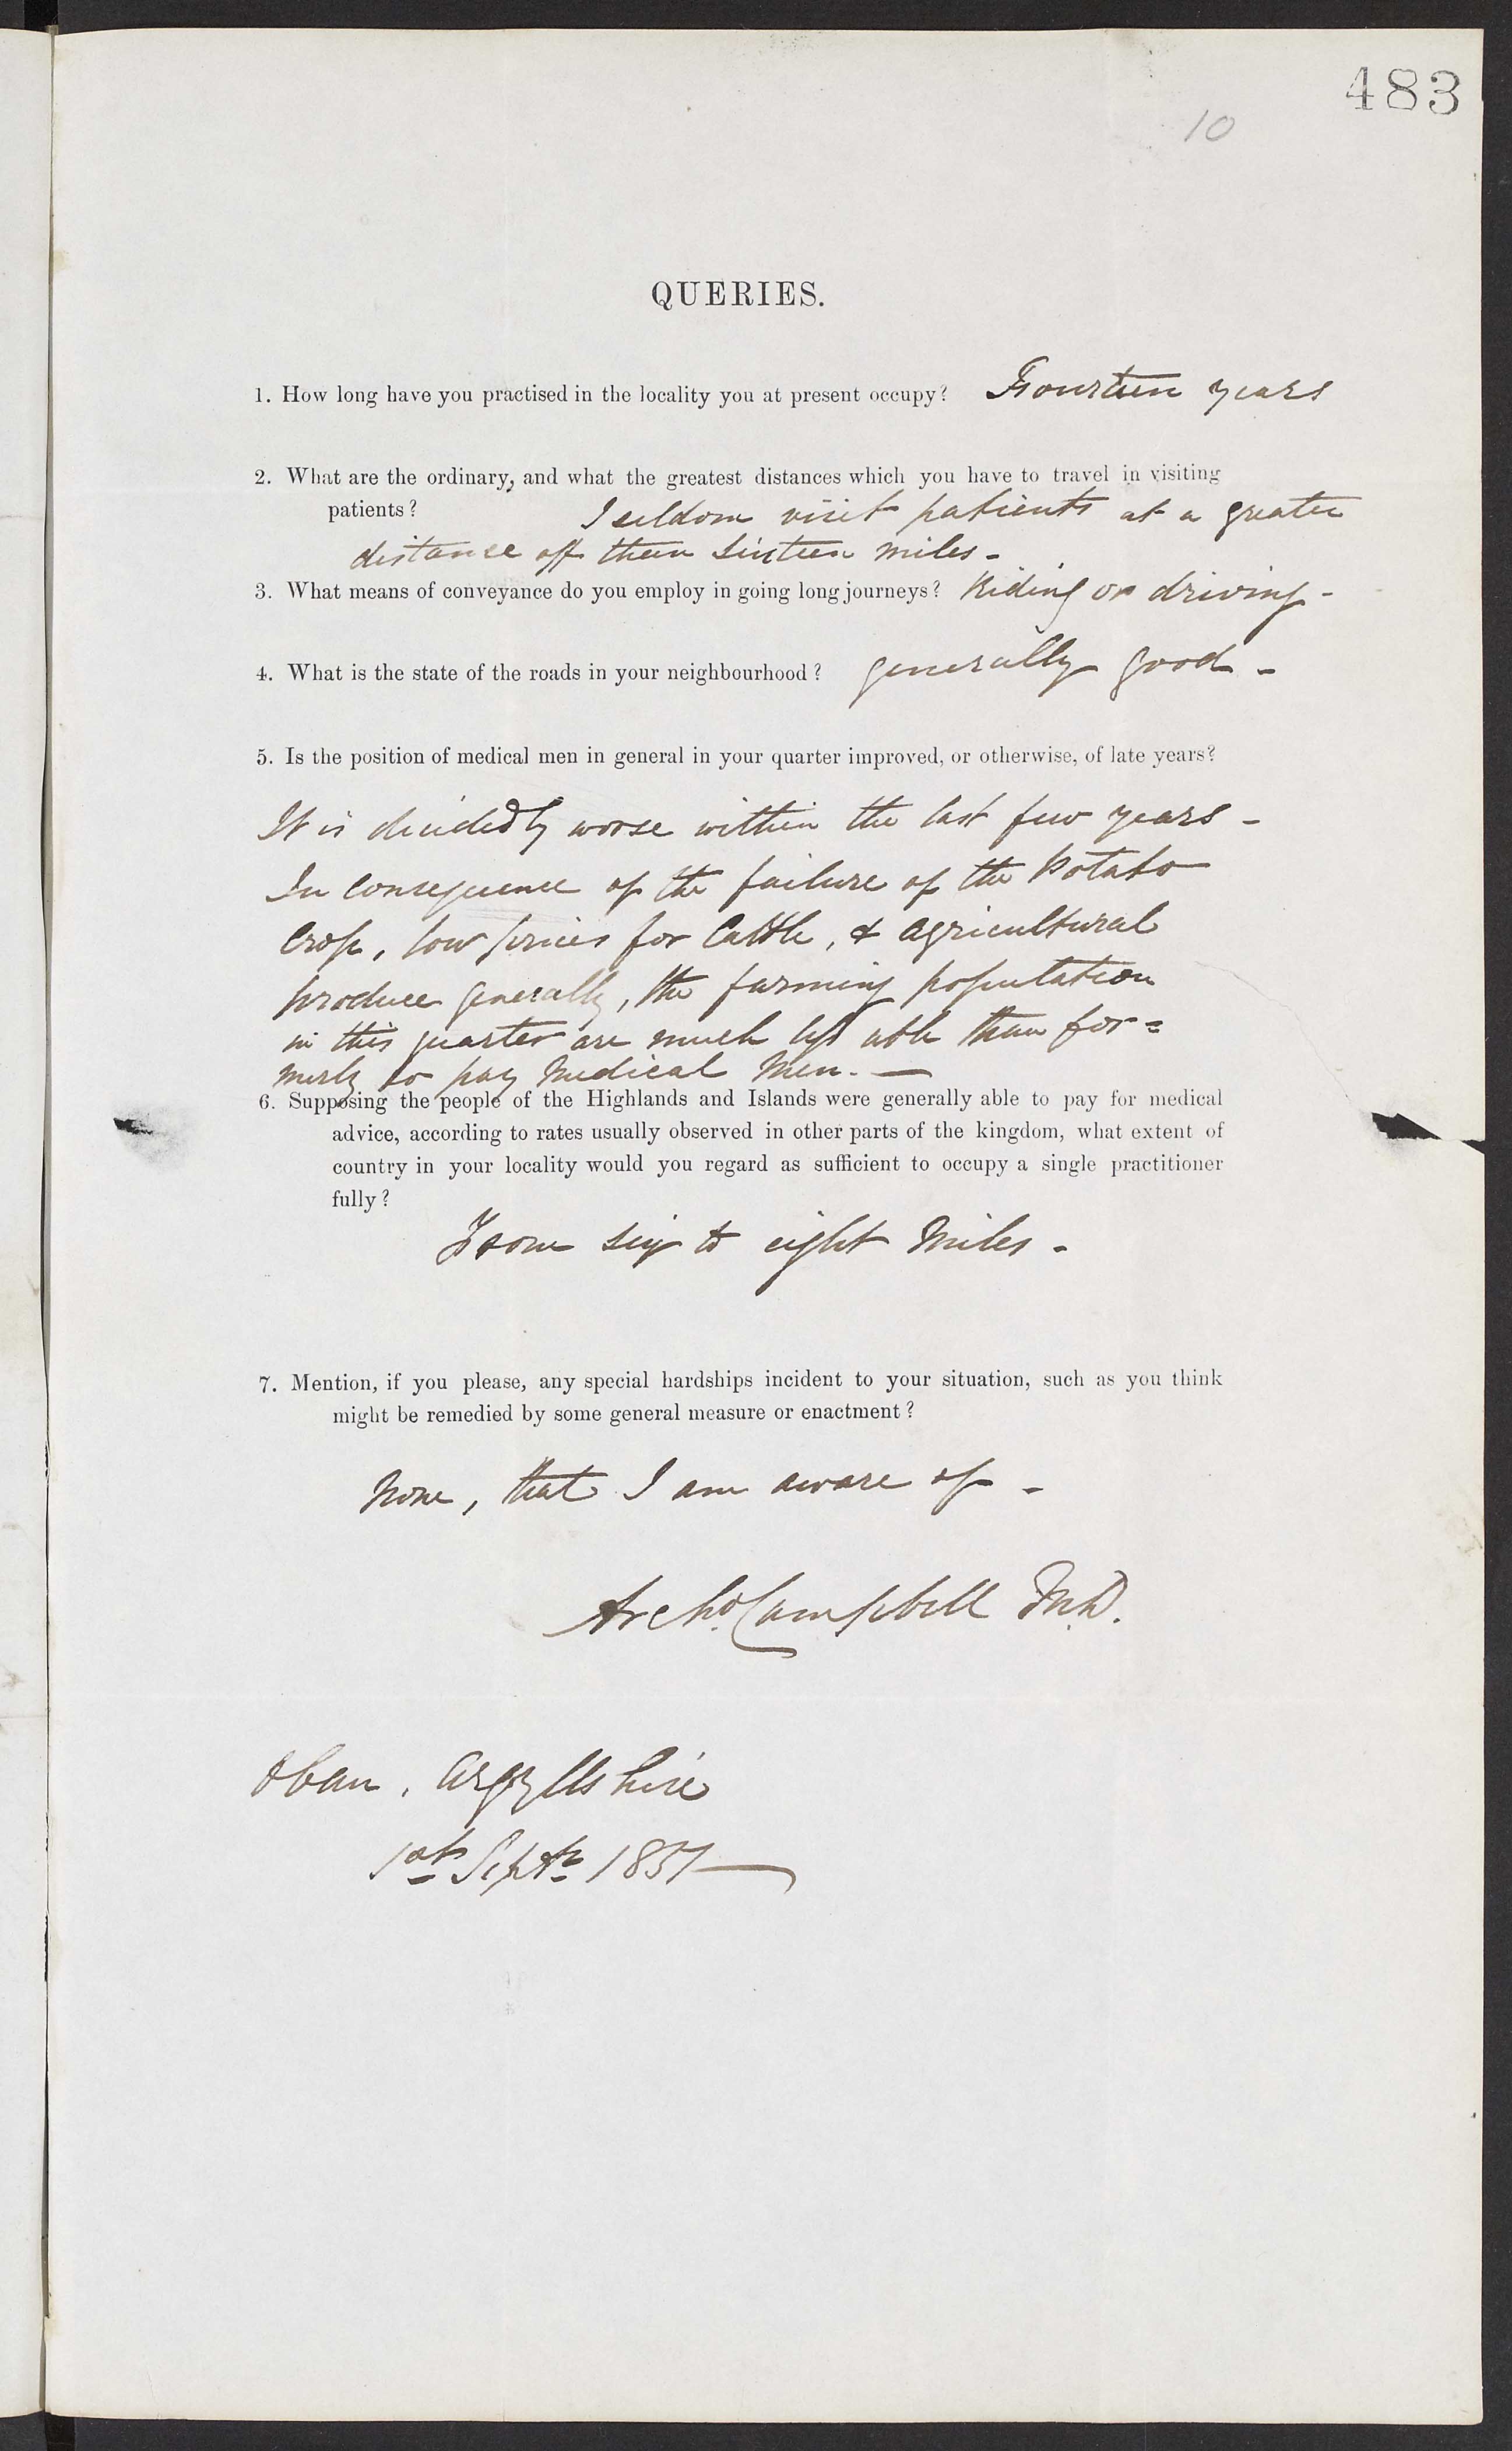 483
10
QUERIES.
1. How long have you practised in the locality you at present occupy? Fourteen years
2. What are the ordinary, and what the greatest distances which you have to travel in visiting
patients? I seldom visit patients at a greater
distance off than sixteen miles -
3. What means of conveyance do you employ in going long journeys? Riding or driving -
4. What is the state of the roads in your neighbourhood? generally good -
5. Is the position of medical men in general in your quarter improved, or otherwise, of late years?
It is decidedly worse within the last few years -
In consequence of the failure of the Potato
Crop, low prices for Cattle, & agricultural
produce generally, the farming population
in this quarter are much less able than for=
merly to pay Medical Men. —
6. Supposing the people of the Highlands and Islands were generally able to pay for medical
advice, according to rates usually observed in other parts of the kingdom, what extent of
country in your locality would you regard as sufficient to occupy a single practitioner
fully?
From six to eight Miles -
7. Mention, if you please, any special hardships incident to your situation, such as you think
might be remedied by some general measure or enactment?
None, that I am aware of -
Archd. Campbell M.D.
Oban, Argyllshire
1st Septr 1851